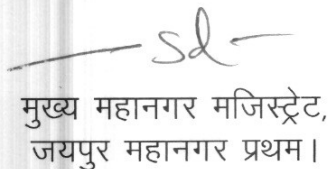 sd
मुख्य महानगर मजिस्ट्रेट,
जयपुर महानगर प्रथम।